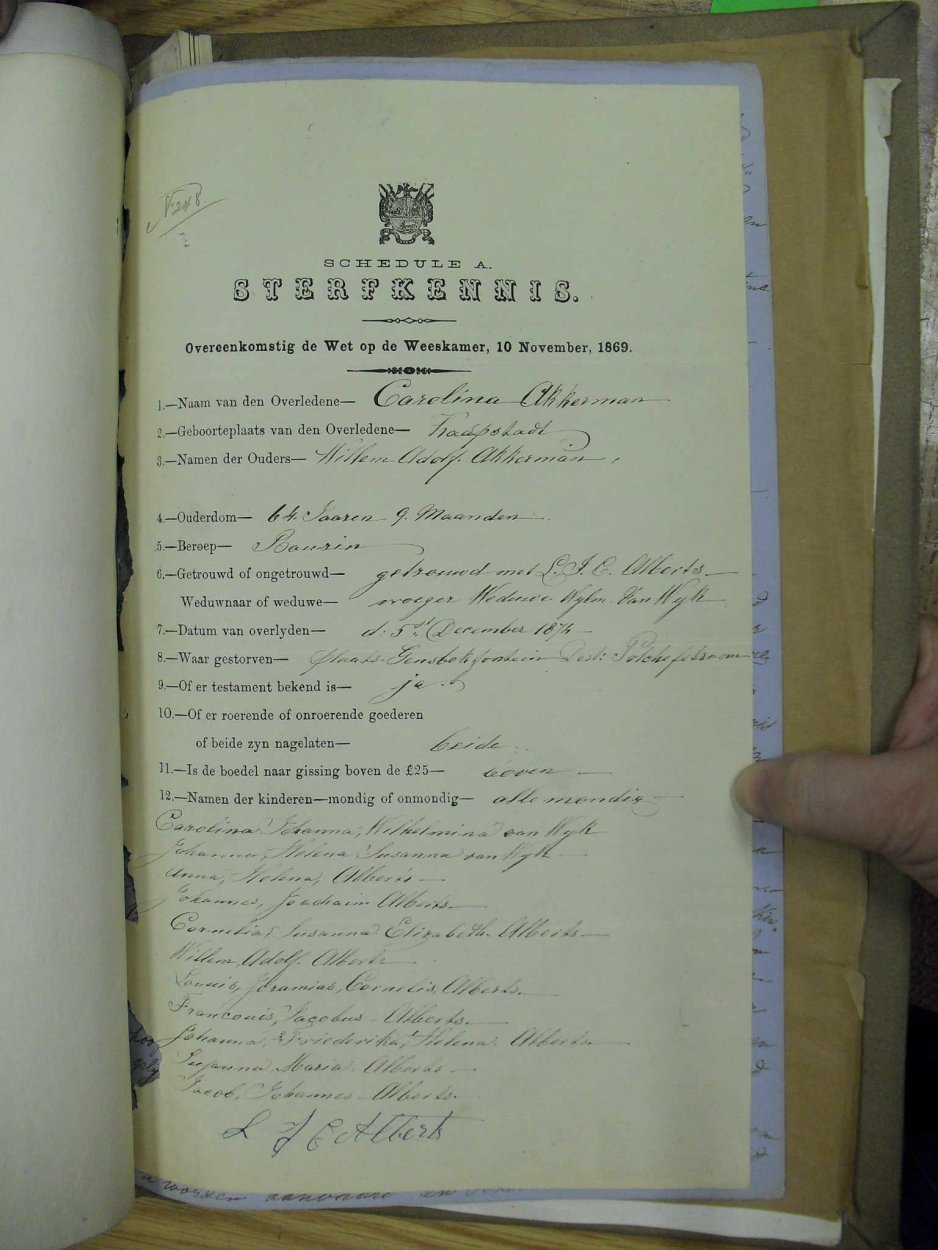 N: 248
SCHEDULE A.
STERFKENNIS.
Overeenkomstig de Wet op de Weeskamer, 10 November, 1869.
1.—Naam van den Overledene— Carolina Akkerman
2.—Geboorteplaats van den Overledene— Kaapstadt
3.—Namen der Ouders— Willem Adolf Akkerman
4.—Ouderdom— 64 Jaaren 9. Maanden
5.—Beroep— Bourin
6.—Getrouwd of ongetrouwd— getrouwd met L. J. C. Alberts
Weduwnaar of weduwe— vroeger Weduwe Wylm. Van Wyk
7.—Datum van overlyden— d: 5de December 187
8.—Waar gestorven— plaats Gensbokfontein Dest: Potchefstroom
9.—Of er testament bekend is— ja
10.—Of er roerende of onroerende goederen
of beide zyn nagelaten— beide
11.—Is de boedel naar gissing boven de £25— boven
12.—Namen der kinderen—mondig of onmondig— alle mondig
Carolina, Johanna, Wilhelmina van Wyk
Johanna, Helena, Susanna van Wyk
Anna, Helena, Alberts
Johannes, Joachaim Alberts
Cornelia, Susanna Elizabeth Alberts
Willem Adolf Alberts
Louuis, Jeramias, Cornelis, Alberts.
Francouis, Jacobus Alberts.
Johanna, Friederika, Helena Alberts.
Susanna Maria Alberts
Jacob, Johannes Alberts.
L J C Alberts